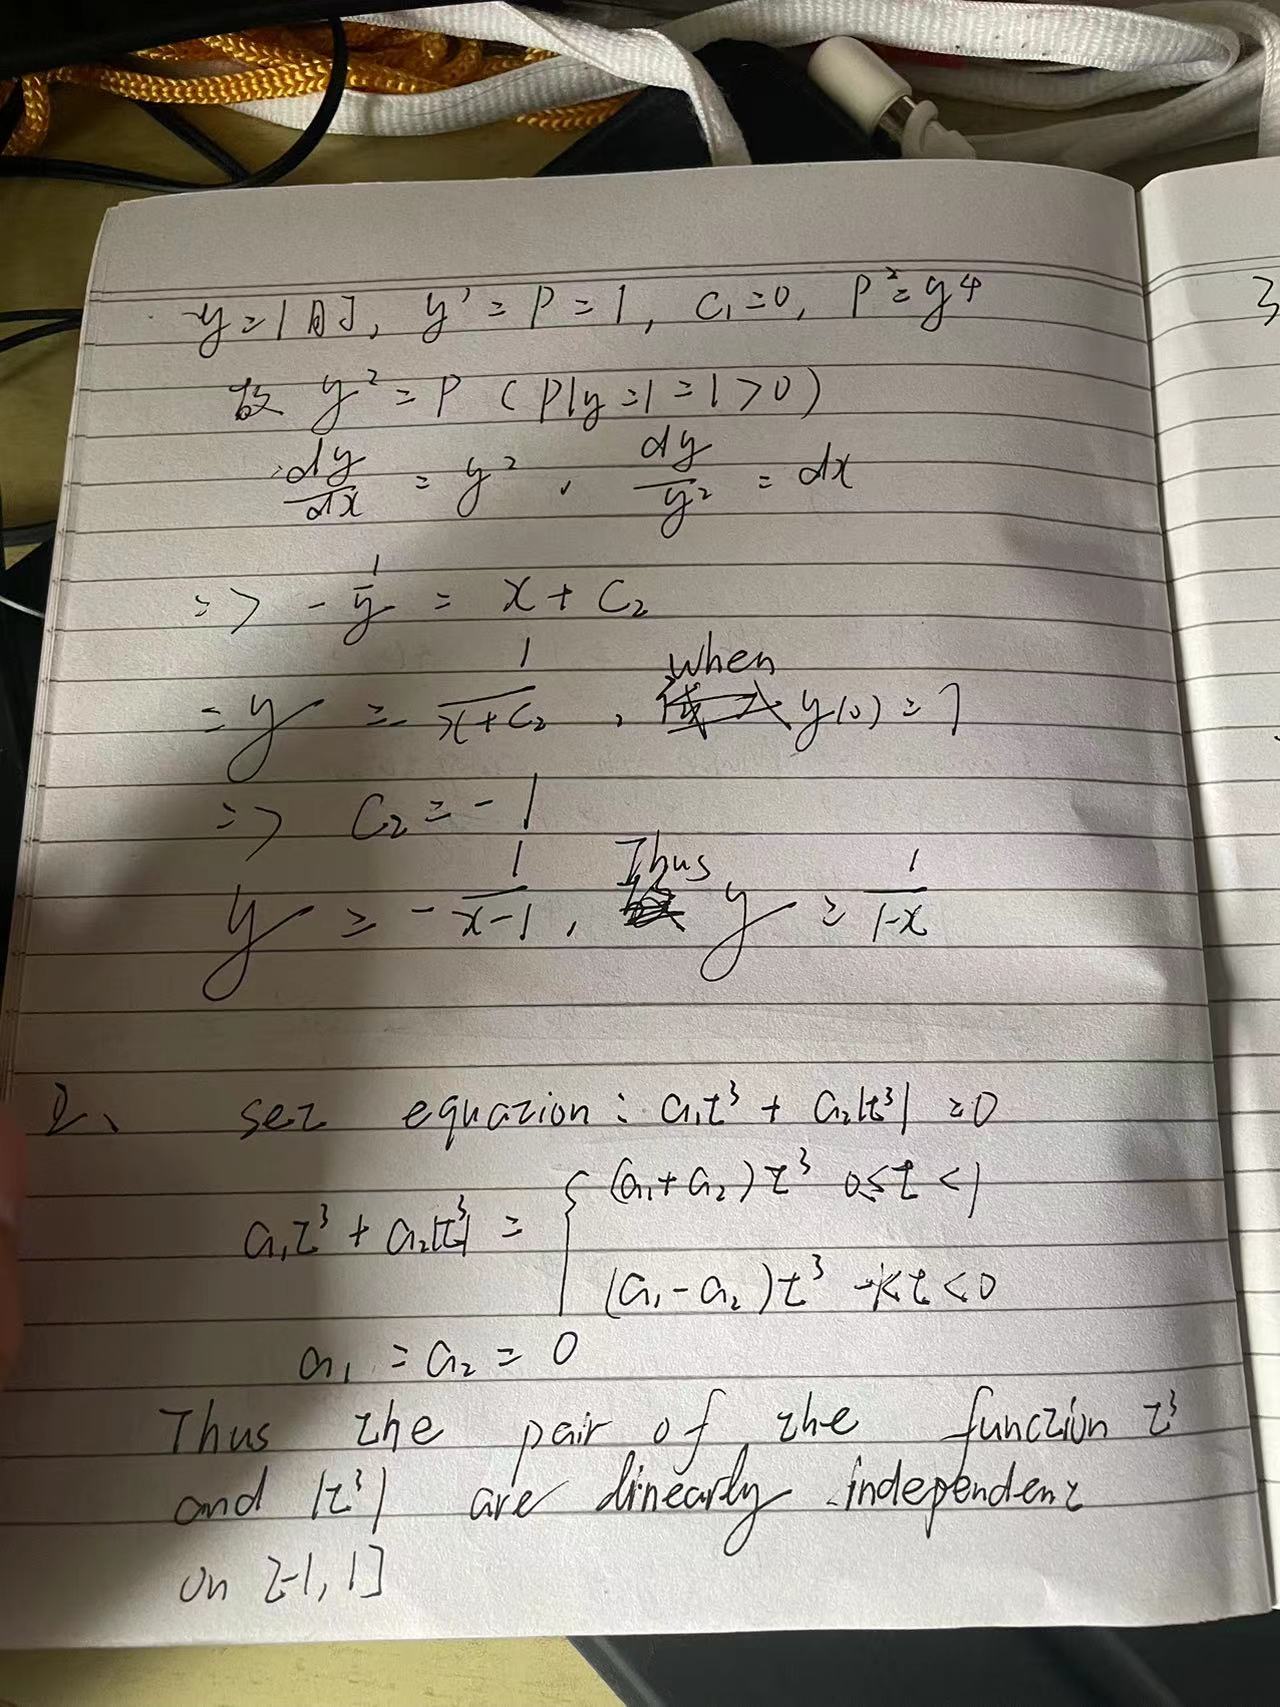 y=1时, y'=P=1, C₁=0, P²=y⁴
故 y²=P (P|y=1=1>0)
dy/dx = y², dy/y² = dx
=> -1/y = x+C₂
=y = -1/(x+C₂), when y(0)=1
=> C₂=-1
y = -1/(x-1), Thus y = 1/(1-x)
2、 set equation: a₁t³ + a₂|t³| =0
a₁t³ + a₂|t³| = { (a₁+a₂)t³ 0≤t<1
(a₁-a₂)t³ -1<t<0
a₁ = a₂ = 0
Thus the pair of the function t³
and |t³| are linearly independent
on [-1,1]
3